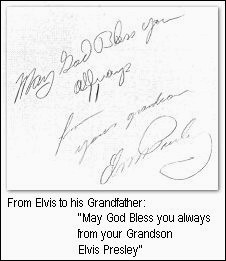 May God Bless you
always
from
your grandson
Elvis Presley
From Elvis to his Grandfather:
"May God Bless you always
from your Grandson
Elvis Presley"